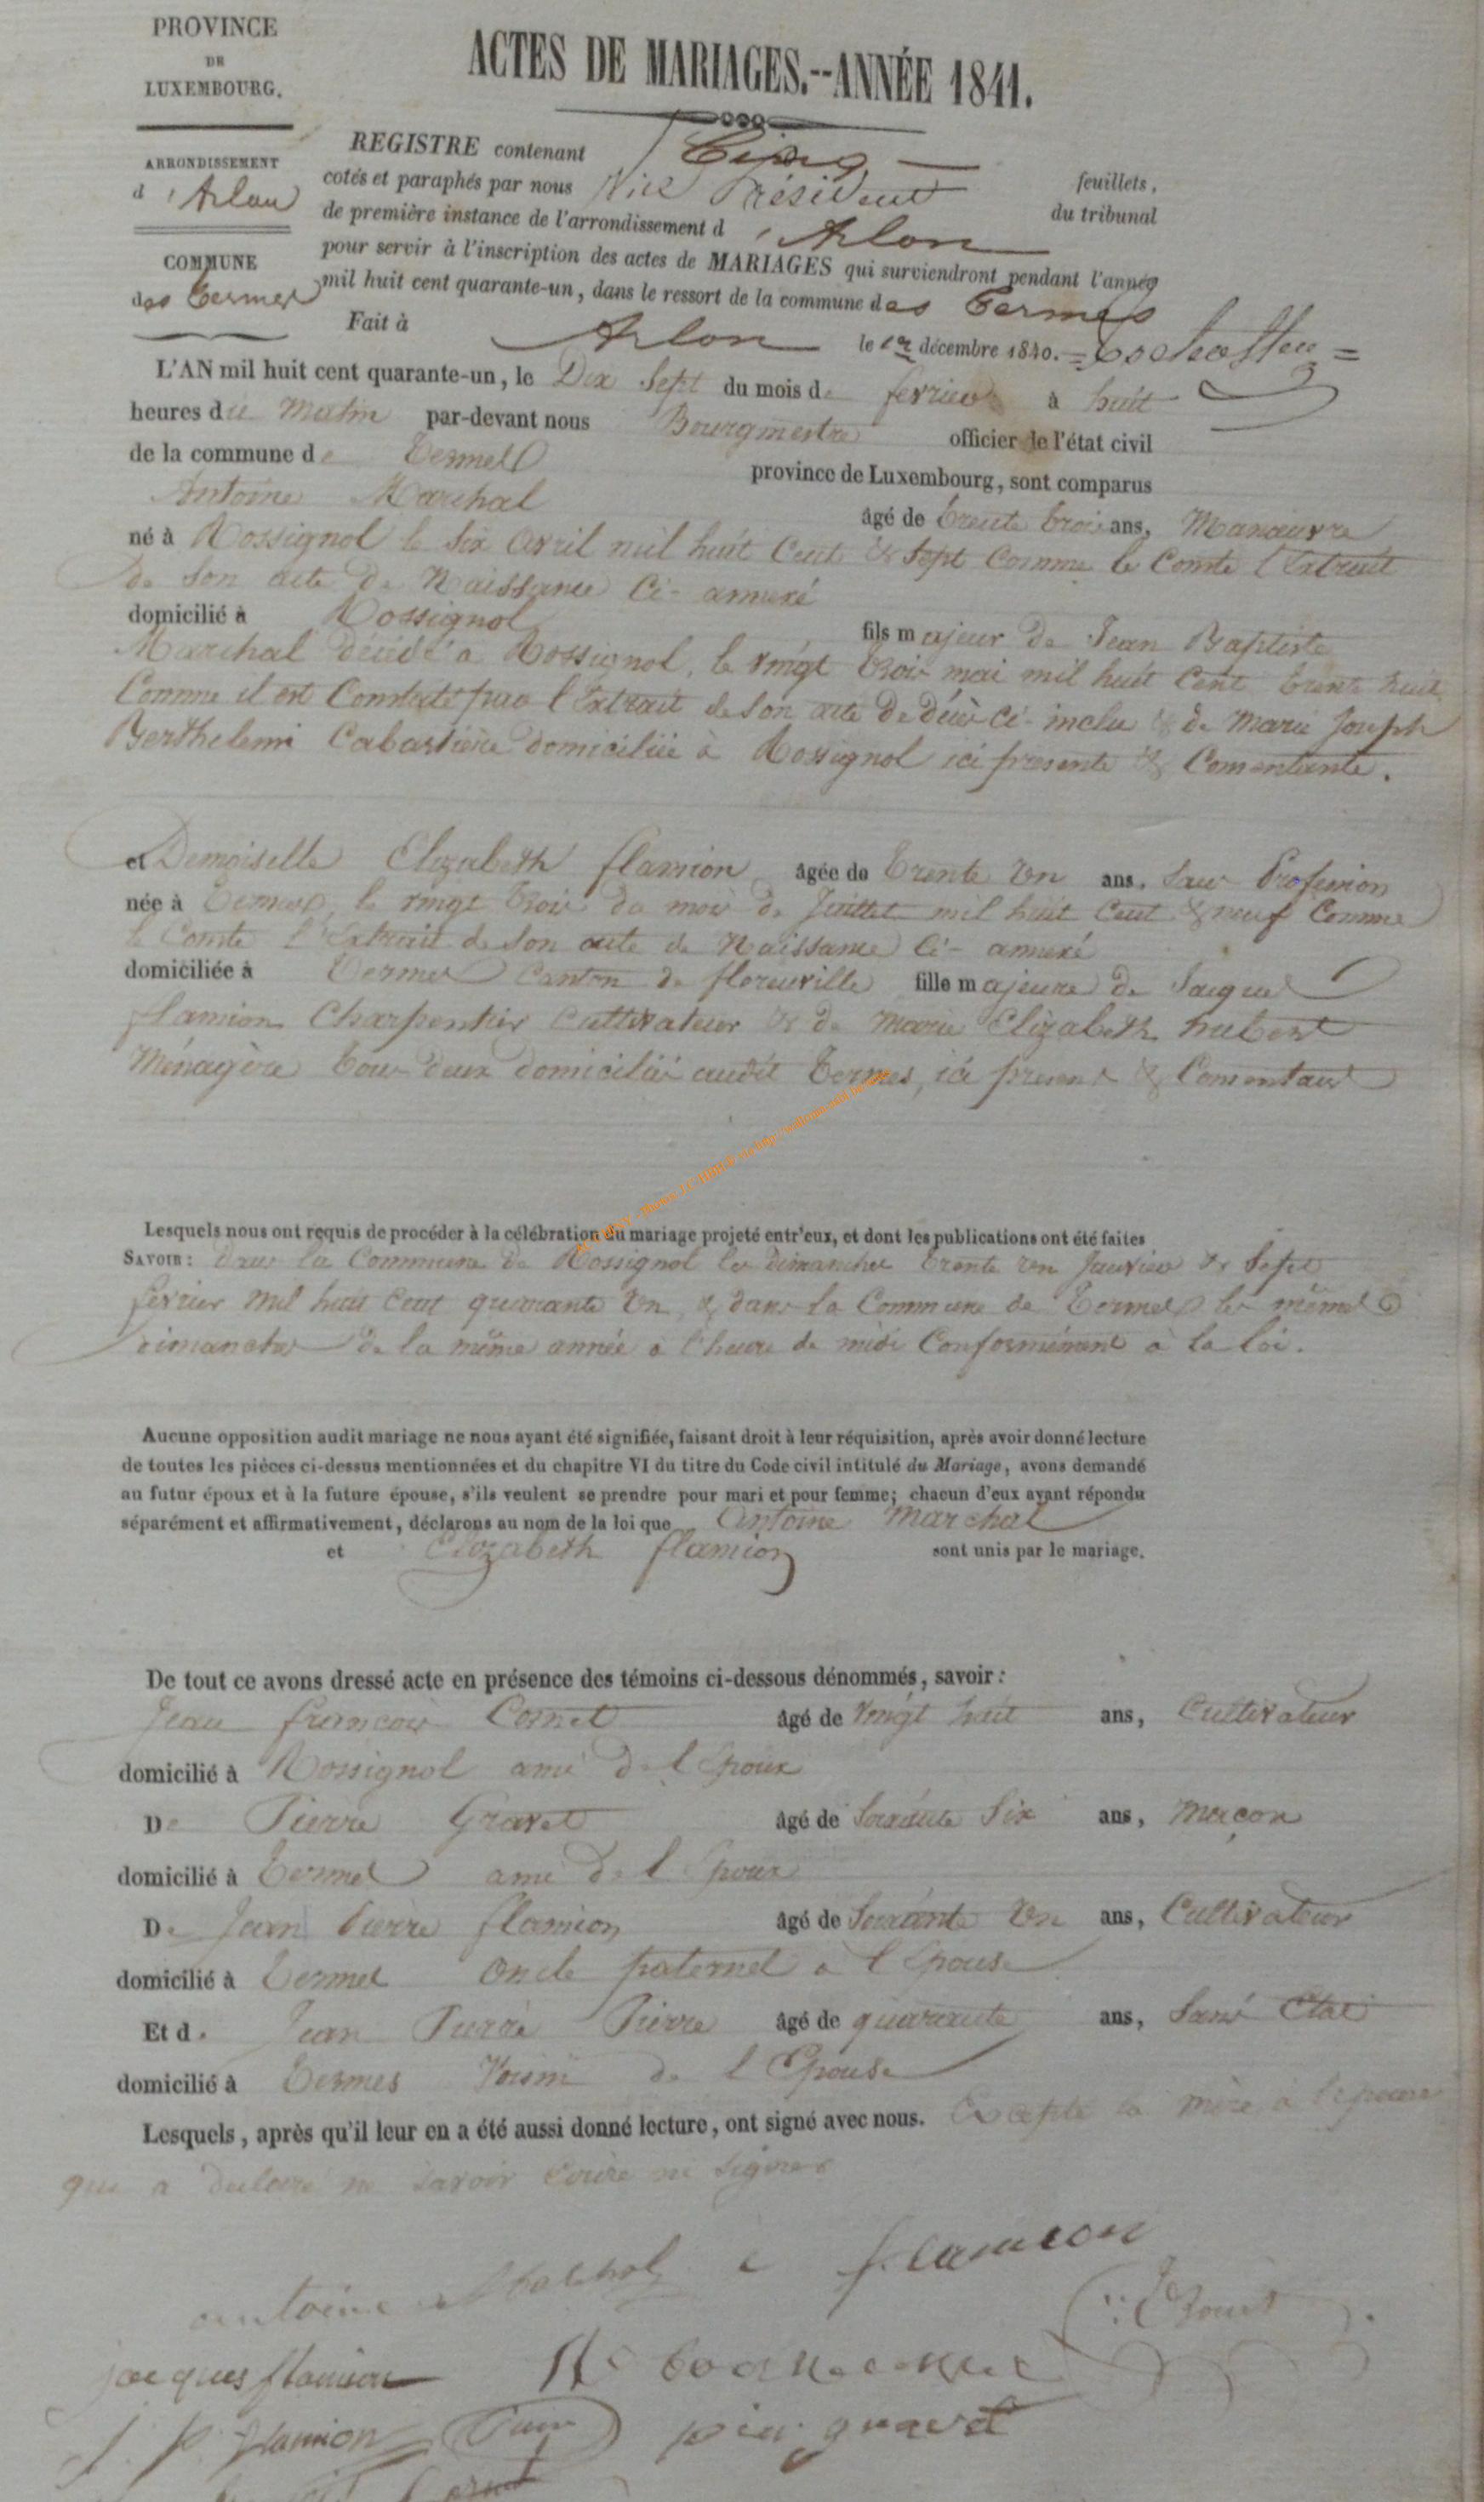 PROVINCE
DE
LUXEMBOURG.
ARRONDISSEMENT
d'Arlon
COMMUNE
des Termes
ACTES DE MARIAGES.--ANNÉE 1841.
REGISTRE contenant Cinq feuillets,
cotés et paraphés par nous Vice Président du tribunal
de première instance de l'arrondissement d'Arlon
pour servir à l'inscription des actes de MARIAGES qui surviendront pendant l'année
mil huit cent quarante-un, dans le ressort de la commune des Termes
Fait à Arlon le 1er décembre 1840.
L'AN mil huit cent quarante-un, le Dix Sept du mois de fevrier à huit
heures du Matin par-devant nous Bourgmestre officier de l'état civil
de la commune de Termes province de Luxembourg, sont comparus
Antoine Marchal âgé de trente trois ans, Manoeuvre
né à Rossignol le Six Avril mil huit Cent & Sept Comme le Comte l'Extrait
de Son acte de Naissance Ci-annexé
domicilié à Rossignol fils majeur de Jean Baptiste
Marchal décédé a Rossignol, le vingt trois mai mil huit Cent trente huit
Comme il est Constaté par l'Extrait de Son acte de décès Ci-inclu & de Marie Joseph
Berthelemi Cabartière domiciliée à Rossignol ici presente & Consentante.
et Demoiselle Elizabeth flamion âgée de trente Un ans, Sans Profession
née à Termes, le vingt trois du mois de Juillet mil huit Cent & neuf Comme
le Comte l'Extrait de Son acte de Naissance Ci-annexé
domiciliée à Termes Canton de florenville fille majeure de Jacques
flamion Charpentier Cultivateur & de Marie Elizabeth hubert
Ménagère tous deux domiciliés audit Termes, ici present & Consentant
Lesquels nous ont requis de procéder à la célébration du mariage projeté entr'eux, et dont les publications ont été faites
SAVOIR: Dans la Commune de Rossignol les dimanches trente un Janvier & Sept
février mil huit Cent quarante Un & dans la Commune de Termes les mêmes
dimanches de la même année à l'heure de midi Conformément à la loi.
Aucune opposition audit mariage ne nous ayant été signifiée, faisant droit à leur réquisition, après avoir donné lecture
de toutes les pièces ci-dessus mentionnées et du chapitre VI du titre du Code civil intitulé du Mariage, avons demandé
au futur époux et à la future épouse, s'ils veulent se prendre pour mari et pour femme; chacun d'eux ayant répondu
séparément et affirmativement, déclarons au nom de la loi que Antoine Marchal
et Elizabeth flamion sont unis par le mariage.
De tout ce avons dressé acte en présence des témoins ci-dessous dénommés, savoir:
Jean francois Cornet âgé de Vingt huit ans, Cultivateur
domicilié à Rossignol ami de l'Epoux
De Pierre Gravet âgé de Soixante Six ans, maçon
domicilié à Termes ami de l'Epoux
De Jean Pierre flamion âgé de Soixante Un ans, Cultivateur
domicilié à Termes oncle paternel a l'Epouse
Et de Jean Pierre Pierre âgé de quarante ans, Sans Etat
domicilié à Termes Voisin de l'Epouse
Lesquels, après qu'il leur en a été aussi donné lecture, ont signé avec nous. Excepté la mère à l'epouse
qui a declaré ne savoir ecrire ni signer
antoine Marchal e flamion
jacques flamion
j. p. flamion gravet